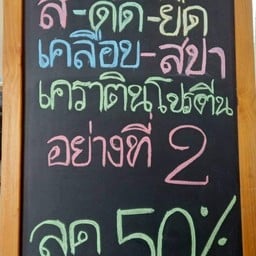 สี-ดัด-ยืด
เคลือบ-สปา
เคราตินโปรตีน
อย่างที่ 2
ลด 50%